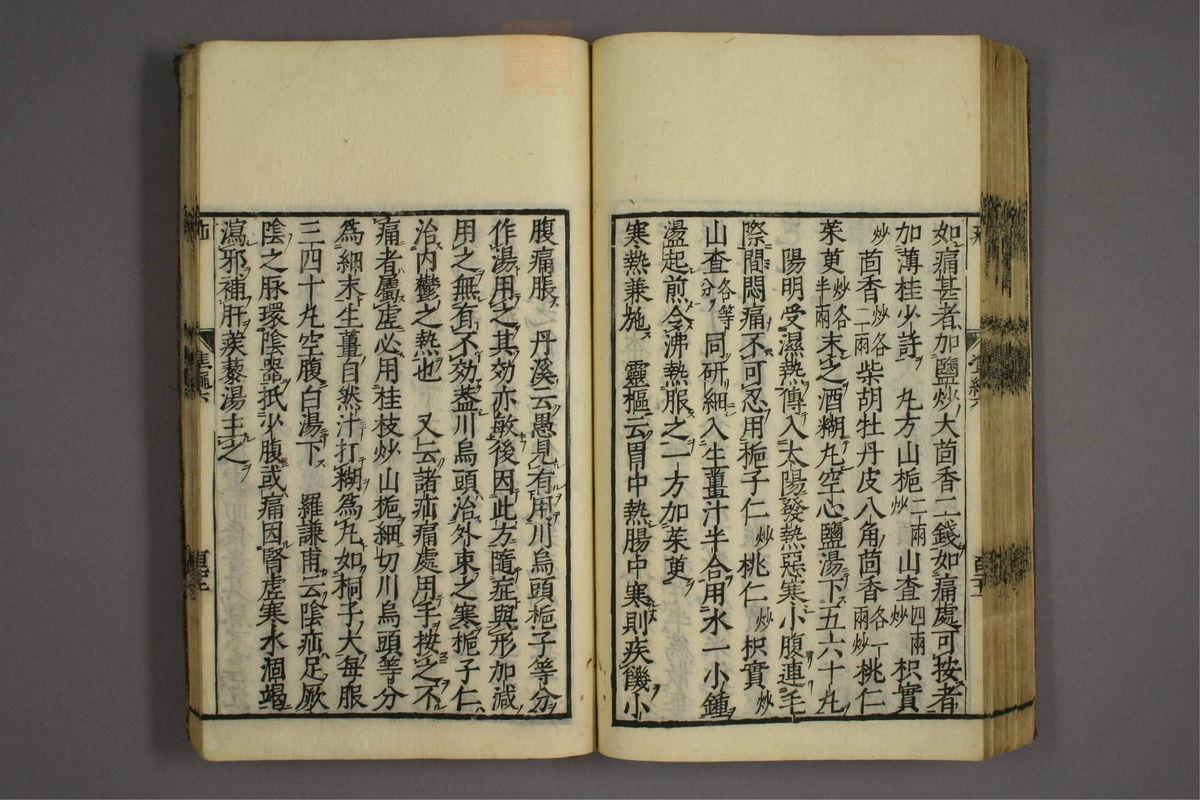 如痛甚者加鹽炒大茴香二錢如痛處可按者
加薄桂少許　丸方山梔炒二兩山查炒四兩枳實
炒茴香炒各二兩柴胡牡丹皮八角茴香炒各一兩桃仁
茱萸炒各半兩末之酒糊丸空心鹽湯下五六十丸
陽明受濕熱傳入太陽發熱惡寒小腹連毛
際間悶痛不可忍用梔子仁炒桃仁炒枳實炒
山查各等分同研細入生薑汁半合用水一小鍾
盪起煎令沸熱服之一方加茱萸
寒熱兼施　靈樞云胃中熱腸中寒則疾饑小
腹痛脹　丹溪云愚見有用川烏頭梔子等分
作湯用之其効亦敏後因此方隨症與形加減
用之無有不効蓋川烏頭治外束之寒梔子仁
治內鬱之熱也　又云諸疝痛處用手按之不
痛者屬虛必用桂枝炒山梔細切川烏頭等分
爲細末生薑自然汁打糊爲丸如桐子大每服
三四十丸空腹白湯下　羅謙甫云陰疝足厥
陰之脉環陰器抵少腹或痛因腎虛寒水涸竭
瀉邪補肝蒺藜湯主之